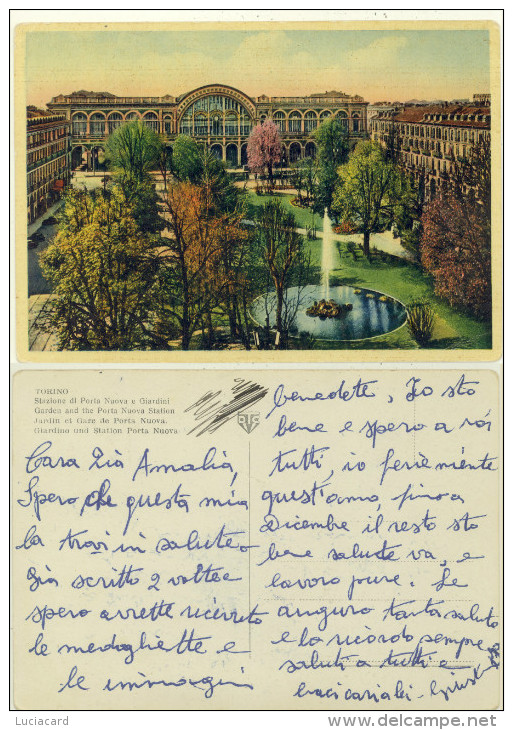 TORINO
Stazione di Porta Nuova e Giardini
Garden and the Porta Nuova Station
Jardin et Gare de Porta Nuova.
Giardino und Station Porta Nuova
Cara Zià Amalià,
Spero che questa mia
la trovi in salute
Già scritto 2 volte e
spero avrette ricevuto
le medagliette e
le immagini
benedete, Io sto
bene e spero a voi
tutti, io feriè niènte
quest'anno, fino a
Dicembre il resto sto
bene salute va, e
lavoro pure. Le
auguro tanta salute
e la ricordo sempre
saluti a tutti e
baci cariali
Luciacard
http://www.delcampe.net